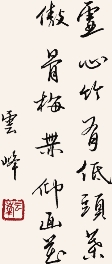 虛心竹有低頭葉
傲骨梅無仰面花
雲峰